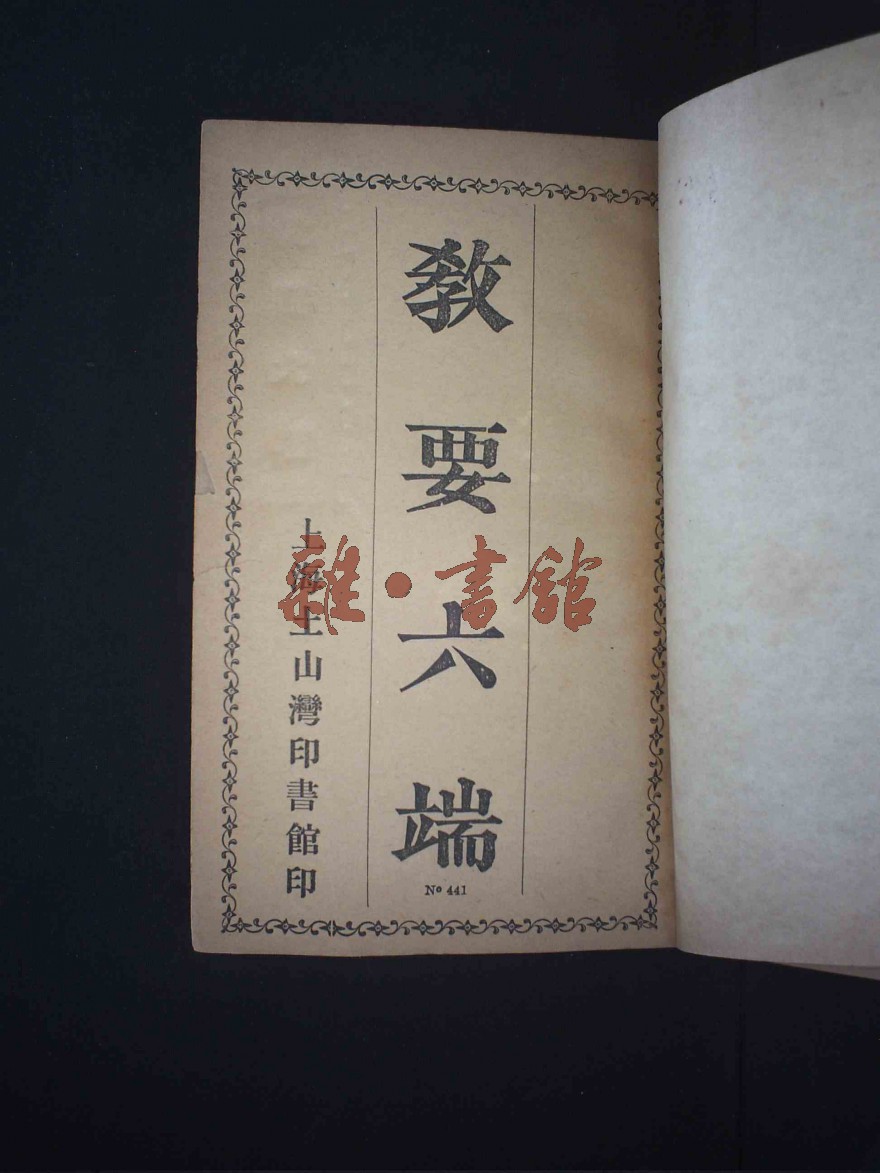 教要六端
Nº 441
上海土山灣印書館印
雜·書館